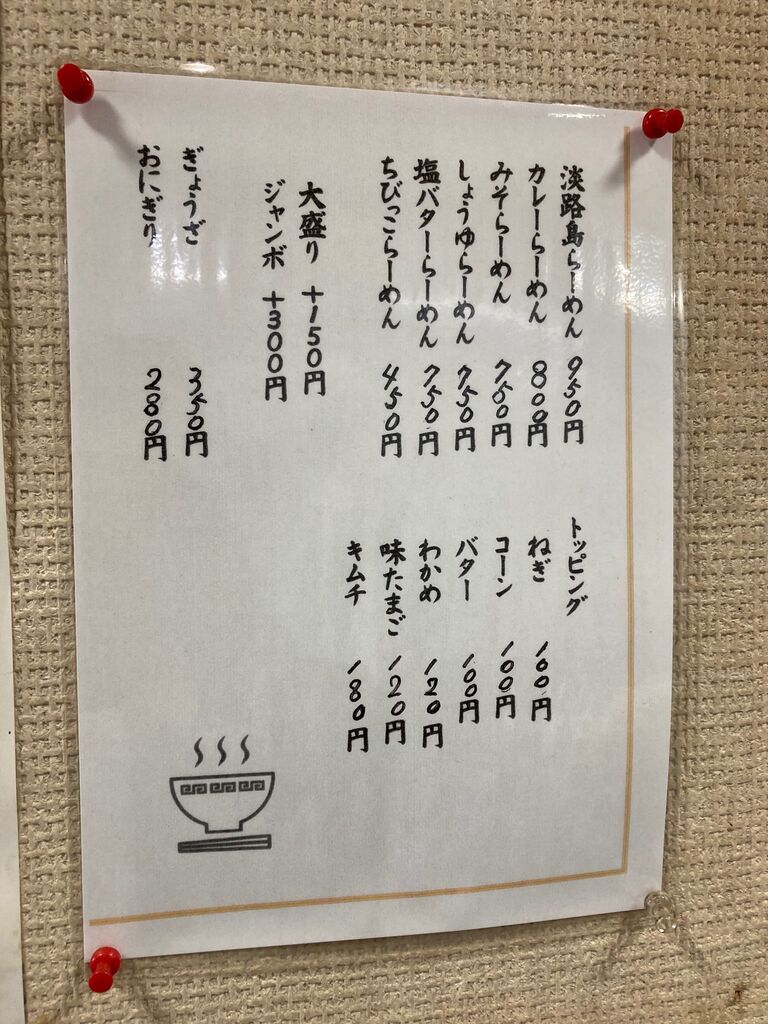 淡路島らーめん 950円
カレーらーめん 800円
みそらーめん 750円
しょうゆらーめん 750円
塩バターらーめん 750円
ちびっこらーめん 450円
大盛り +150円
ジャンボ +300円
ぎょうざ 350円
おにぎり 280円
トッピング
ねぎ 100円
コーン 100円
バター 100円
わかめ 120円
味たまご 120円
キムチ 180円